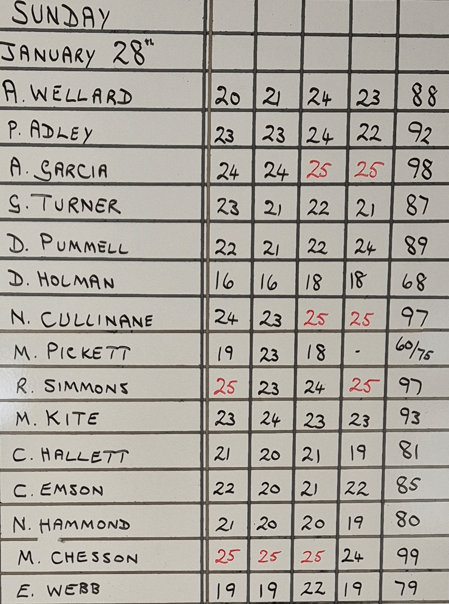 SUNDAY
JANUARY 28th
A. WELLARD 20 21 24 23 88
P. ADLEY 23 23 24 22 92
A. GARCIA 24 24 25 25 98
G. TURNER 23 21 22 21 87
D. PUMMELL 22 21 22 24 89
D. HOLMAN 16 16 18 18 68
N. CULLINANE 24 23 25 25 97
M. PICKETT 19 23 18 - 60/75
R. SIMMONS 25 23 24 25 97
M. KITE 23 24 23 23 93
C. HALLETT 21 20 21 19 81
C. EMSON 22 20 21 22 85
N. HAMMOND 21 20 20 19 80
M. CHESSON 25 25 25 24 99
E. WEBB 19 19 22 19 79